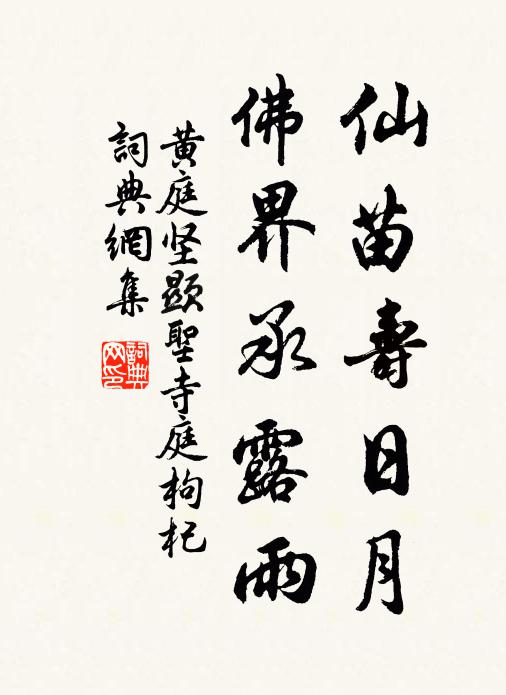 仙苗壽日月
佛界承露雨
黄庭坚顯聖寺庭枸杞
詞典網集
詞典网印